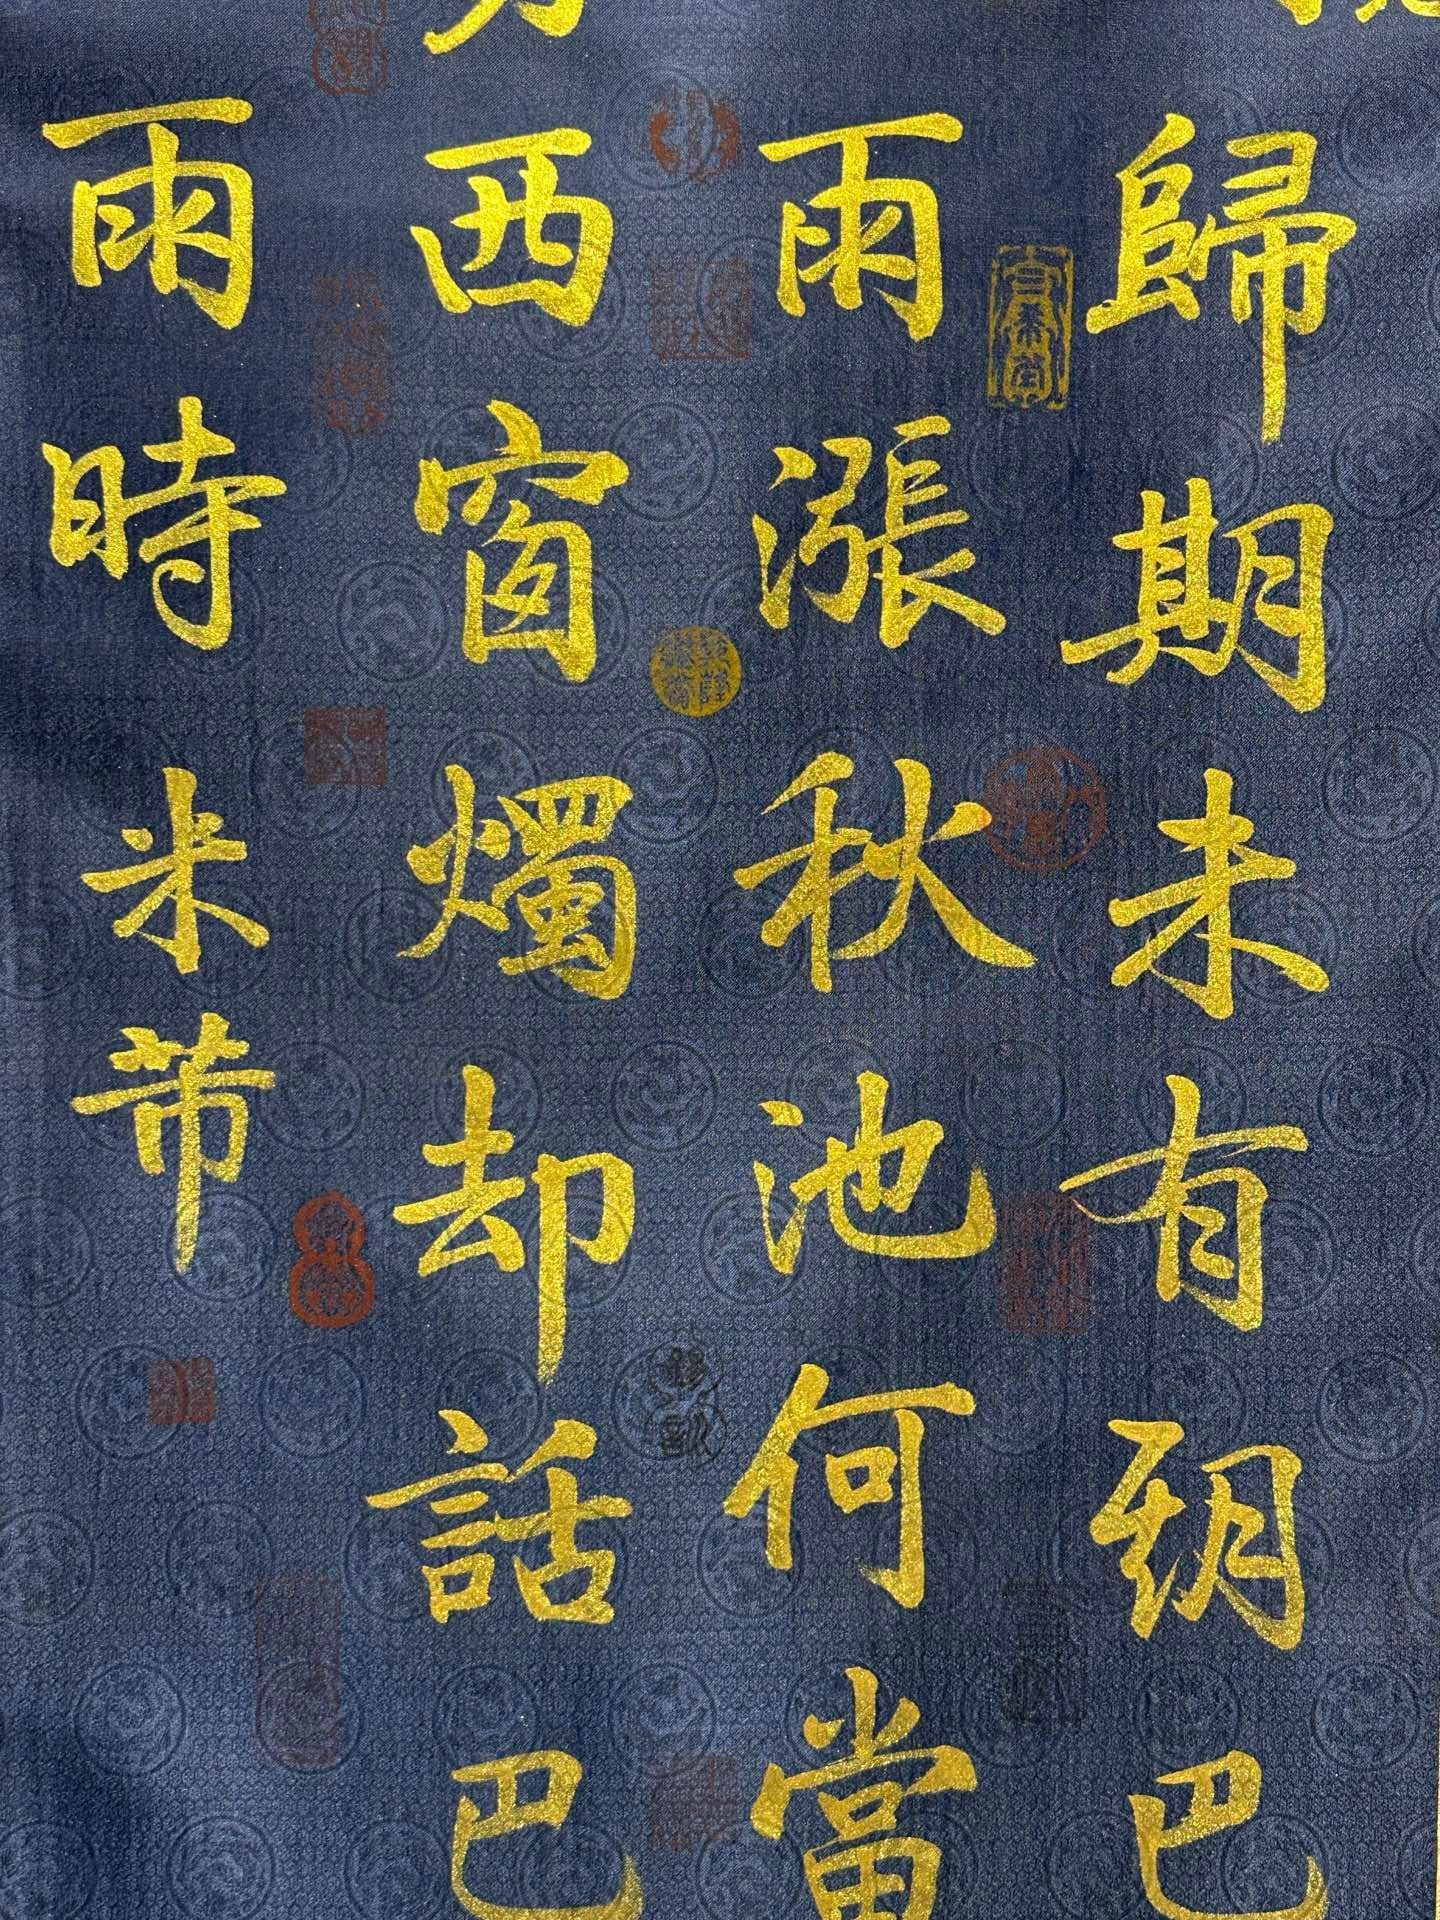 歸期未有期巴
雨漲秋池何當
西窗燭却話巴
雨時米芾